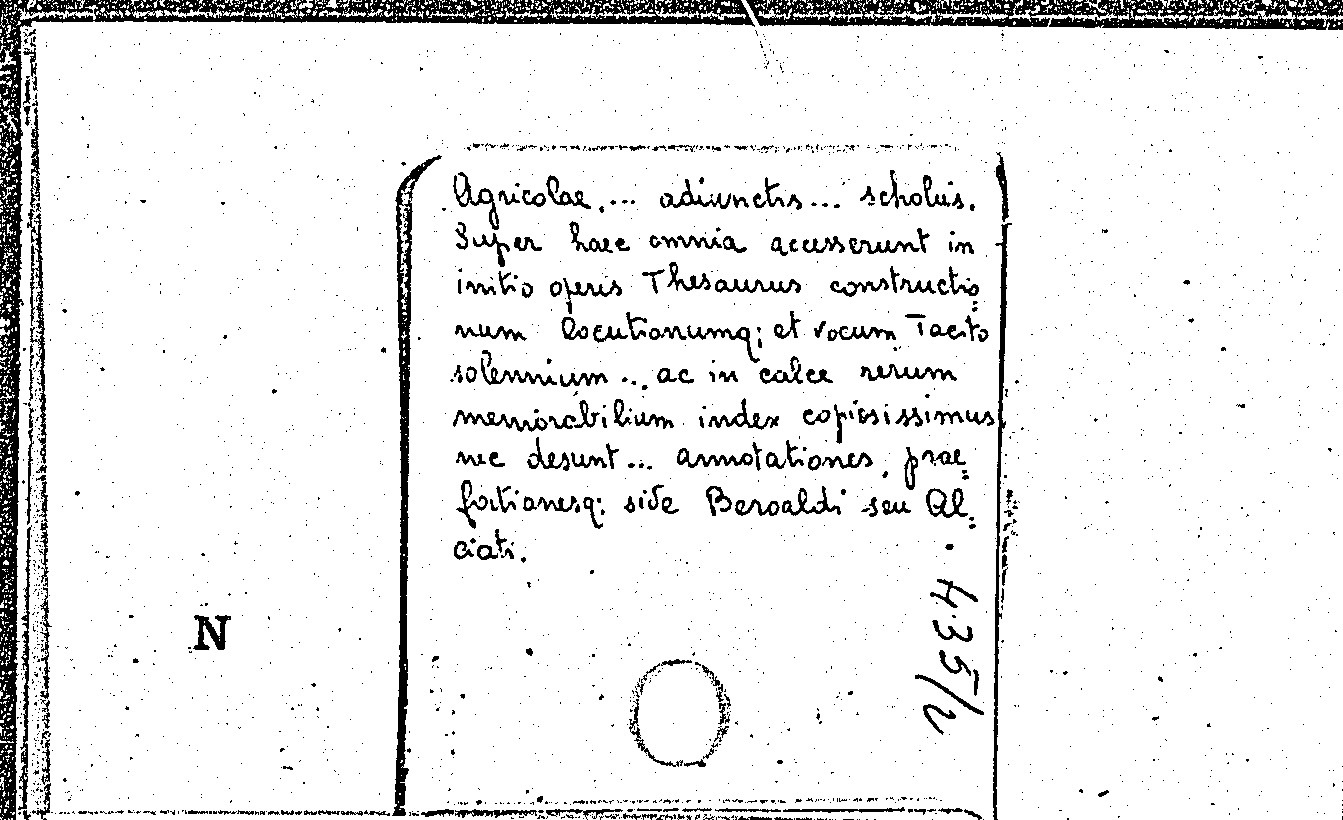 Agricolae,... adiunctis... scholiis.
Super haec omnia accesserunt in
initio operis Thesaurus constructio=
num locutionumq; et vocum Tacito
solennium... ac in calce rerum
memorabilium index copiosissimus
nec desunt... annotationes, prae=
fationesq; side Beroaldi seu Al=
ciati.
435/2
N